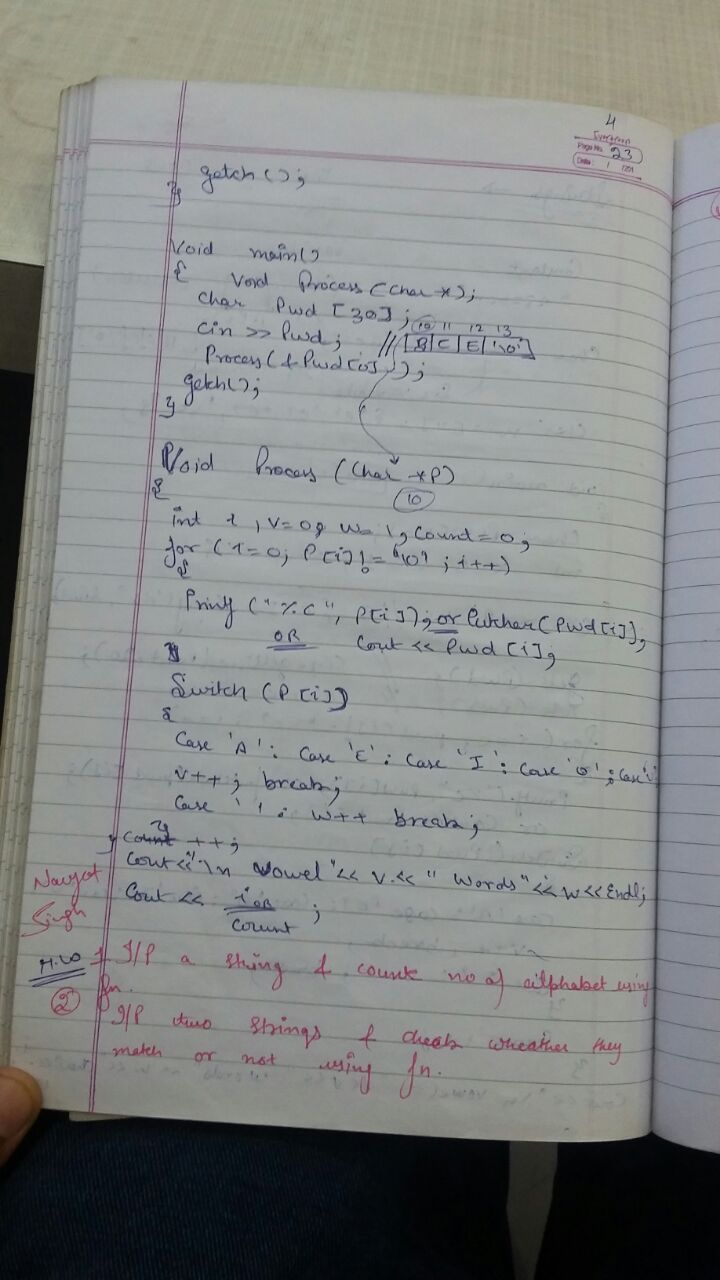 4
Page No. 23
Date: / /201
getch ();
}
Void main()
{ Void Process (char *);
char Pwd [30];
10 11 12 13
cin >> Pwd; // B|C|E|'\0'
Process (& Pwd[0]);
getch();
}
Void Process (Char *P)
10
{
int i, V=0, w=1, Count=0;
for (i=0; P[i]!='\0'; i++)
{
Printf ("%c", P[i]); or Putchar(Pwd[i]);
OR Cout << Pwd [i];
Switch (P[i])
{
Case 'A': Case 'E': Case 'I': Case 'O': Case
V++; break;
Case ' ': w++ break;
}
} Count ++;
Cout<<"\n Vowel"<< V.<< " Words"<<w<<Endl;
Cout << i OR ;
Count
Navjot
Singh
H.W 1 I/P a string & count no of alphabet using
fn.
2 I/P two strings & check wheather they
match or not using fn.